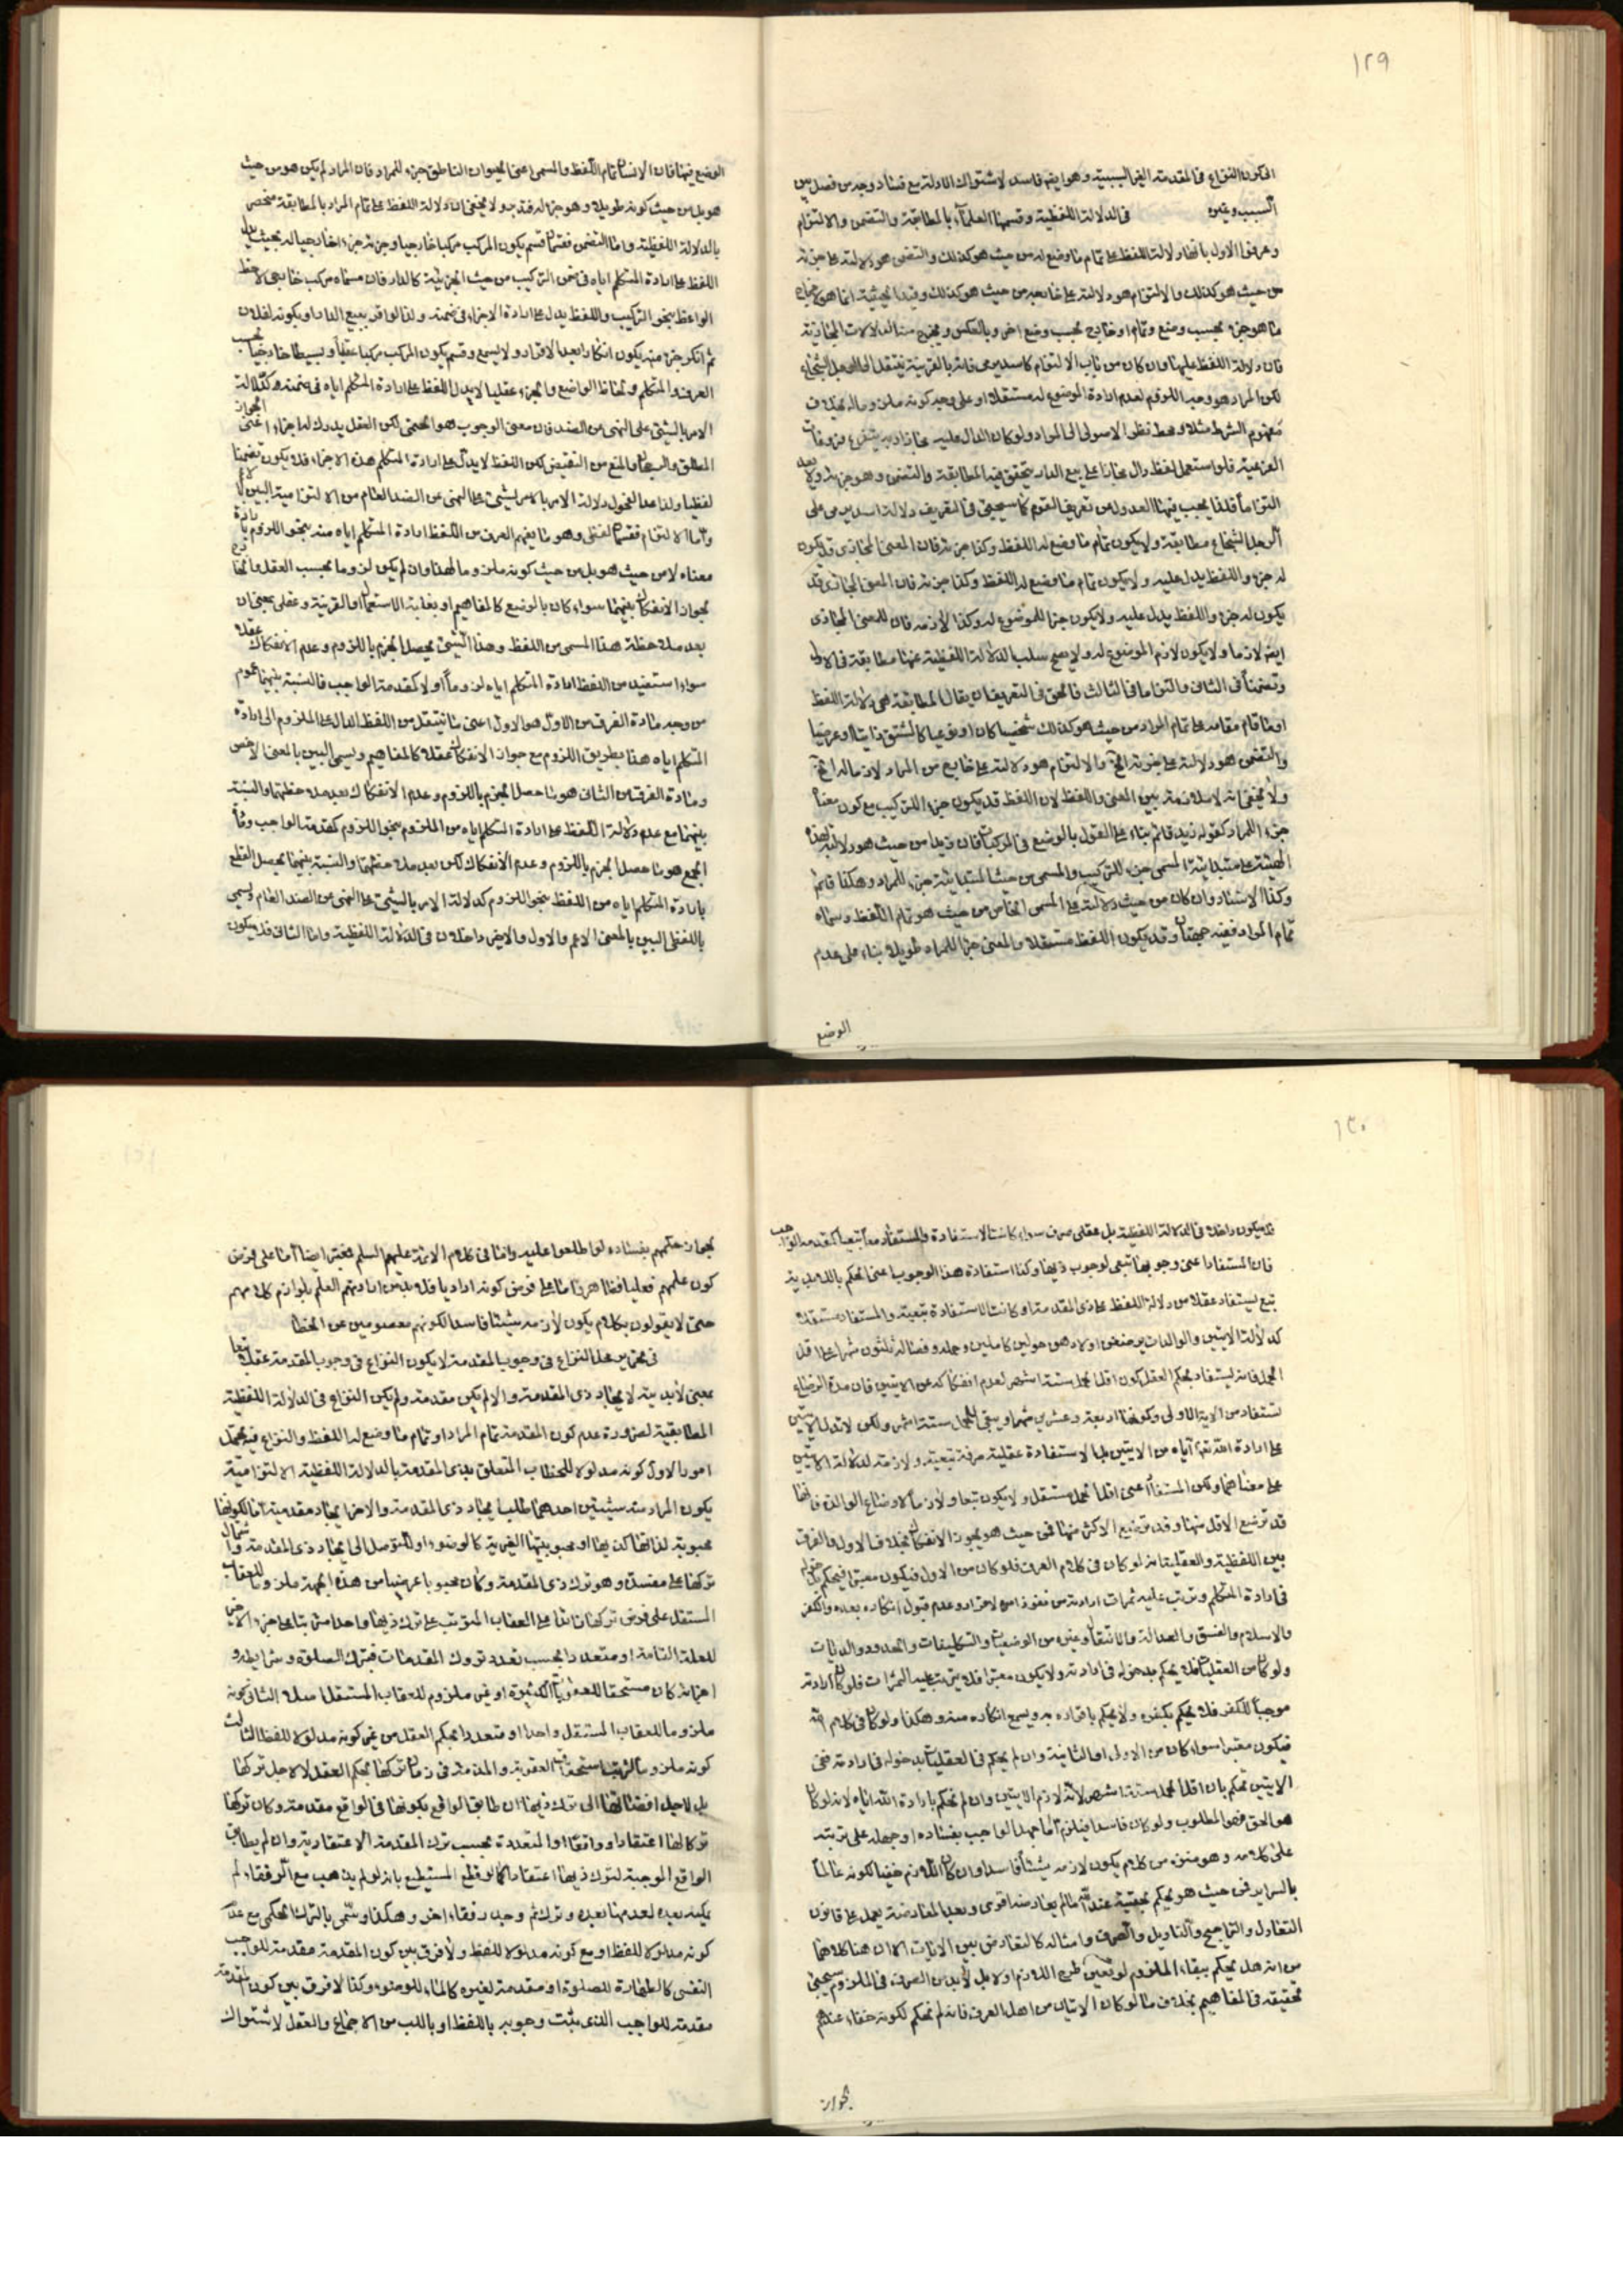 ١٢٩
الى كون النزاع فى المقدمة الغير السببية وهو ايضا فاسد لاشتراك الادلة مع فساد وجه من فصل بين
السبب وغيره فى الدلالة اللفظية وقسمها العلماء بالمطابقة والتضمن والالتزام
وعرفوا الاول بانها دلالة اللفظ على تمام ما وضع له من حيث هو كذلك والتضمن هو دلالته على جزئه
من حيث هو كذلك والالتزام هو دلالته على خارجه من حيث هو كذلك وقيد الحيثية انما هو لاخراج
ما هو جزء بحسب وضع وتمام او خارج بحسب وضع اخر وبالعكس ويخرج منه الدلالات المجازية
فان دلالة اللفظ عليها وان كان من باب الالتزام كاسد يرمى فانه بالقرينة ينتقل الى الرجل الشجاع
لكن المراد هو وحيد اللزوم لعدم ارادة الموضوع له مستقلا او على وجه كونه ملزوما له بخلاف
مفهوم الشرط مثلا ومحط نظر الاصولى الى المراد ولو كان الدال عليه مجازا وبه يتفرع فروعات
الفرعية فلو استعمل لفظ دال مجازا على بيع الدار يتحقق فيه المطابقة والتضمن وهو جزئه ولازمه
التزاما فلذا يجب فيها العدول من تعريف القوم كما سيجيئ فى التعريف دلالة اسد يرمى على
الرجل الشجاع مطابقة ولا يكون تمام ما وضع له اللفظ وكذا جزئه فان المعنى المجازى قد يكون
له جزء واللفظ يدل عليه ولا يكون تمام ما وضع له اللفظ وكذا جزئه فان المعنى المجازى قد
يكون له جزء واللفظ يدل عليه ولا يكون جزء للموضوع له وكذا لازمه فان للمعنى المجازى
ايضا لازما ولا يكون لازم الموضوع له ولا يصح سلب الدلالة اللفظية عنها مطابقة فى الاول
وتضمنا فى الثانى والتزاما فى الثالث فالحق فى التعريف ان يقال المطابقة هى دلالة اللفظ
او ما قام مقامه على تمام المراد من حيث هو كذلك شخصيا كان او نوعيا كالمشتق ذاتيا او عرضيا
والتضمن هو دلالته على جزئه الخ والالتزام هو دلالته على خارج عن المراد لازما له الخ
ولا يخفى انه لا ملازمة بين المعنى واللفظ لان اللفظ قد يكون جزء التركيب مع كون معناه
جزء المراد كقوله زيد قائم بناء على القول بالوضع فى المركبات فان زيدا من حيث هو دلالته لهذا
الهيئة على مبتدائية المسمى جزء للتركيب والمسمى من حيث المبتدائية جزء للمراد وهكذا قائم
وكذا الاسناد وان كان من حيث دلالته على المسمى الخاص من حيث هو تمام اللفظ ومسماه
تمام المراد ففيه جهتان وقد يكون اللفظ مستقلا والمعنى جزء المراد طويلا بناء على عدم
الوضع
الوضع فيها فان الانسان تمام اللفظ والمسمى اعنى الحيوان الناطق جزء للمراد فان المراد لم يكن هو من حيث
هو بل من حيث كونه طويلا وهو جزء له فتدبر ولا يخفى ان دلالة اللفظ على تمام المراد بالمطابقة منحصر
بالدلالة اللفظية واما التضمن فقسمان قسم يكون المركب مركبا خارجيا وجزئه جزء خارجيا له بحيث يدل
اللفظ على ارادة المتكلم اياه فى ضمن التركيب من حيث الجزئية كالدار فان مسماه مركب خارجى لاحظ
الواعظ بنحو التركيب واللفظ يدل على ارادة الاجزاء فى ضمنه ولذا لو اقر ببيع الدار او بكونه لفلان
ثم انكر جزء منه يكون انكارا بعد الاقرار ولا يسمع وقسم يكون المركب مركبا عقليا وبسيطا خارجيا بحسب
العرف والمتكلم ولحاظ الواضع والجزء عقليا لا يدل اللفظ على ارادة المتكلم اياه فى ضمنه كدلالة
الامر بالشيئ على النهى عن الضد فان معنى الوجوب هو الحتمى لكن العقل يدرك له اجزاء اعنى الجواز
المطلق والرجحان والمنع من النقيض لكن اللفظ لا يدل على ارادة المتكلم هذه الاجزاء فلا يكون تضمنا
لفظيا ولذا عد الفحول دلالة الامر بالامر لشيئ على النهى عن الضد العام من الالتزامية البين
واما الالتزام فقسمان لفظى وهو ما يفهم العرف من اللفظ ارادة المتكلم اياه منه بنحو اللزوم بارادة
معناه لا من حيث هو بل من حيث كونه ملزوما لهذا وان لم يكن لزوما بحسب العقل والخارج
بجواز الانفكاك بينهما سواء كان بالوضع كالمفاهيم او بغلبة الاستعمال او القرينة وعقلى بمعنى ان
بعد ملاحظة هذا المسمى من اللفظ وهذا الشيئ يحصل الجزم باللزوم وعدم الانفكاك عقلا
سواء استفيد من اللفظ ارادة المتكلم اياه لزوما او لا كمقدمة الواجب فالنسبة بينهما عموم
من وجه مادة الفرق من الاول هو الاول اعنى ما ينتقل من اللفظ الدال على الملزوم الى ارادة
المتكلم اياه هذا بطريق اللزوم مع جواز الانفكاك عقلا كالمفاهيم ويسمى البين بالمعنى الاخص
ومادة الفرق من الثانى هو ما حصل الجزم باللزوم وعدم الانفكاك بعد ملاحظتهما والنسبة
بينهما مع عدم دلالة اللفظ على ارادة المتكلم اياه من الملزوم بنحو اللزوم كمقدمة الواجب ومادة
الجمع هو ما حصل الجزم باللزوم وعدم الانفكاك لكن بعد ملاحظتهما والنسبة بينهما يحصل القطع
بارادة المتكلم اياه من اللفظ بنحو اللزوم كدلالة الامر بالشيئ على النهى عن الضد العام ويسمى
باللفظى البين بالمعنى الاعم والاول والاخص داخلان فى الدلالة اللفظية واما الثانى فلا يكون
١٣٠
فلا يكون داخلا فى الدلالة اللفظية بل عقلى صرف سواء كانت الاستفادة والمستفاد معا تبعيا كمقدمة الواجب
فان المستفاد اعنى وجوبها تبعى لوجوب ذيها وكذا استفادة هذا الوجوب اعنى الحكم باللابدية
تبع ليستفاد عقلا من دلالة اللفظ على ذى المقدمة او كانت الاستفادة تبعية والمستفاد مستقلا
كدلالة الايتين والوالدات يرضعن اولادهن حولين كاملين وحمله وفصاله ثلثون شهرا على اقل
الحمل فانه ليستفاد بحكم العقل كون اقل الحمل ستة اشهر لعدم انفكاكه عن الايتين فان مدة الرضاع
تستفاد من الاية الاولى وكونها اربعة وعشرين شهرا ويبقى للحمل ستة اشهر ولكن لا تدل الايتين
على ارادة الله تعالى اياه من الايتين بل الاستفادة عقلية صرفة تبعية ولازمة لدلالة الايتين
على معناهما ولكن المستفاد اعنى اقل الحمل مستقل ولا يكون تبعا ولازما لارضاع الوالدة فانها
قد ترضع الاقل منها وقد ترضع الاكثر منها فمن حيث هو يجوز الانفكاك بخلاف الاول والفرق
بين اللفظية والعقلية انه لو كان فى كلام العرف فلو كان من الاول فيكون معتبرا فيحكم بدخوله
فى ارادة المتكلم وترتب عليه ثمرات ارادته من نفوذ اسلام واقرار وعدم قبول انكاره بعده والكفر
والاسلام والفسق والعدالة والانتقال وغيره من الوضعيات والتكليفات والحدود والديات
ولو كان من العقليات فلا يحكم بدخوله فى ارادته ولا يكون معتبرا فلا يترتب عليه الثمرات فلو كان ارادته
موجبا للكفر فلا يحكم بكفره ولا يحكم باقراره به ويسمع انكاره منه وهكذا ولو كان فى كلام الله
فيكون معتبرا سواء كان من الاولى او الثانية وان لم يحكم فى العقليات بدخوله فى ارادته ففى
الايتين نحكم بان اقل الحمل ستة اشهر لانه لازم الايتين وان لم نحكم بارادة الله اياه لانه لو كان
هو الحق فهو المطلوب ولو كان فاسدا فيلزم اما جهل الواجب بفساده او جهله على ترتبه
على كلامه وهو منزه من كلام يكون لازمه شيئا فاسدا وان كان اللازم خفيا لكونه عالما
بالسرائر فمن حيث هو يحكم بحقيته عند الله ما لم يعارضه اقوى وبعد المعارضة يعمل على قانون
التعادل والتراجيح والتاويل والصرف وامثاله كالتعارض بين الايات الا ان هنا كلاما
من انه هل يحكم ببقاء الملزوم لو تعين طرح اللازم اولا بل لابد من الصرف فى الملزوم سيجيئ
تحقيقه فى المفاهيم بخلاف ما لو كان الاتيان من اهل العرف فانه لم نحكم لكونه خفاء عندهم
بجواز
بجواز حكمهم بفساده لو اطلعوا عليه واما فى كلام الائمة عليهم السلم فمعتبر ايضا اما على فرض
كون علمهم فعليا فظاهر واما على فرض كونه اراديا فلابد من ارادتهم العلم بلوازم كلامهم
حتى لا يقولون بكلام يكون لازمه شيئا فاسدا لكونهم معصومين عن الخطا
فى تحرير محل النزاع فى وجوب المقدمة لا يكون النزاع فى وجوب المقدمة عقلا تبعا
بمعنى لابدية لايجاد ذى المقدمة والا لم يكن مقدمة ولم يكن النزاع فى الدلالة اللفظية
المطابقية لضرورة عدم كون المقدمة تمام المراد او تمام ما وضع له اللفظ والنزاع فيه يحتمل
امور الاول كونه مدلولا للخطاب المتعلق بذى المقدمة بالدلالة اللفظية الالتزامية
يكون المراد منه شيئين احدهما طلب ايجاد ذى المقدمة والاخر ايجاد مقدمته اما لكونها
محبوبة لذاتها كذيها او محبوبيتها الغيرية كالوضوء او للتوصل الى ايجاد ذى المقدمة واشتمال
تركها على مفسدة وهو ترك ذى المقدمة وكان محبوبا عرضيا من هذه الجهة ملزوما للعقاب
المستقل على فرض تركها زائدا على العقاب المترتب على ترك ذيها واحدا مترتبا على جزء الاخر
للعلة التامة او متعددا بحسب تعدد تروك المقدمات فبترك الصلوة وشرايطه و
اجزائه كان مستحقا للعقوبات الكثيرة او غير ملزوم للعقاب المستقل اصلا الثانى كونه
ملزوما للعقاب المستقل واحدا او متعددا بحكم العقل من غير كونه مدلولا للفظ الثالث
كونه ملزوما لترتب استحقاق العقوبة والمذمة فى زمان تركها بحكم العقل لا لاجل تركها
بل لاجل افضائها الى ترك ذيها ان طابق الواقع بكونها فى الواقع مقدمة وكان تركها
تركا لها اعتقادا وواقعا او المتعددة بحسب ترك المقدمة الاعتقادية وان لم يطابق
الواقع الموجبة لترك ذيها اعتقادا كما لو قطع المستطيع بانه لو لم يذهب مع الرفقاء لم
يمكنه بعده لعدمها بعده وترك ثم وجد رفقاء اخر وهكذا ويسمى بالترك الحكمى مع عدم
كونه مدلولا للفظ او مع كونه مدلولا للفظ ولا فرق بين كون المقدمة مقدمة للواجب
النفسى كالطهارة للصلوة او مقدمة لغيره كالماء للوضوء وكذا لا فرق بين كون المقدمة
مقدمة للواجب الذى يثبت وجوبه باللفظ او باللب من الاجماع والعقل لاشتراك